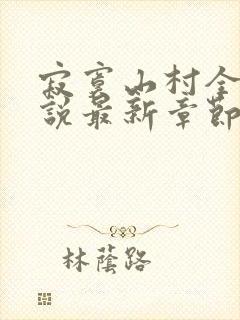 寂寞山村全
說最新章節
林蔭路